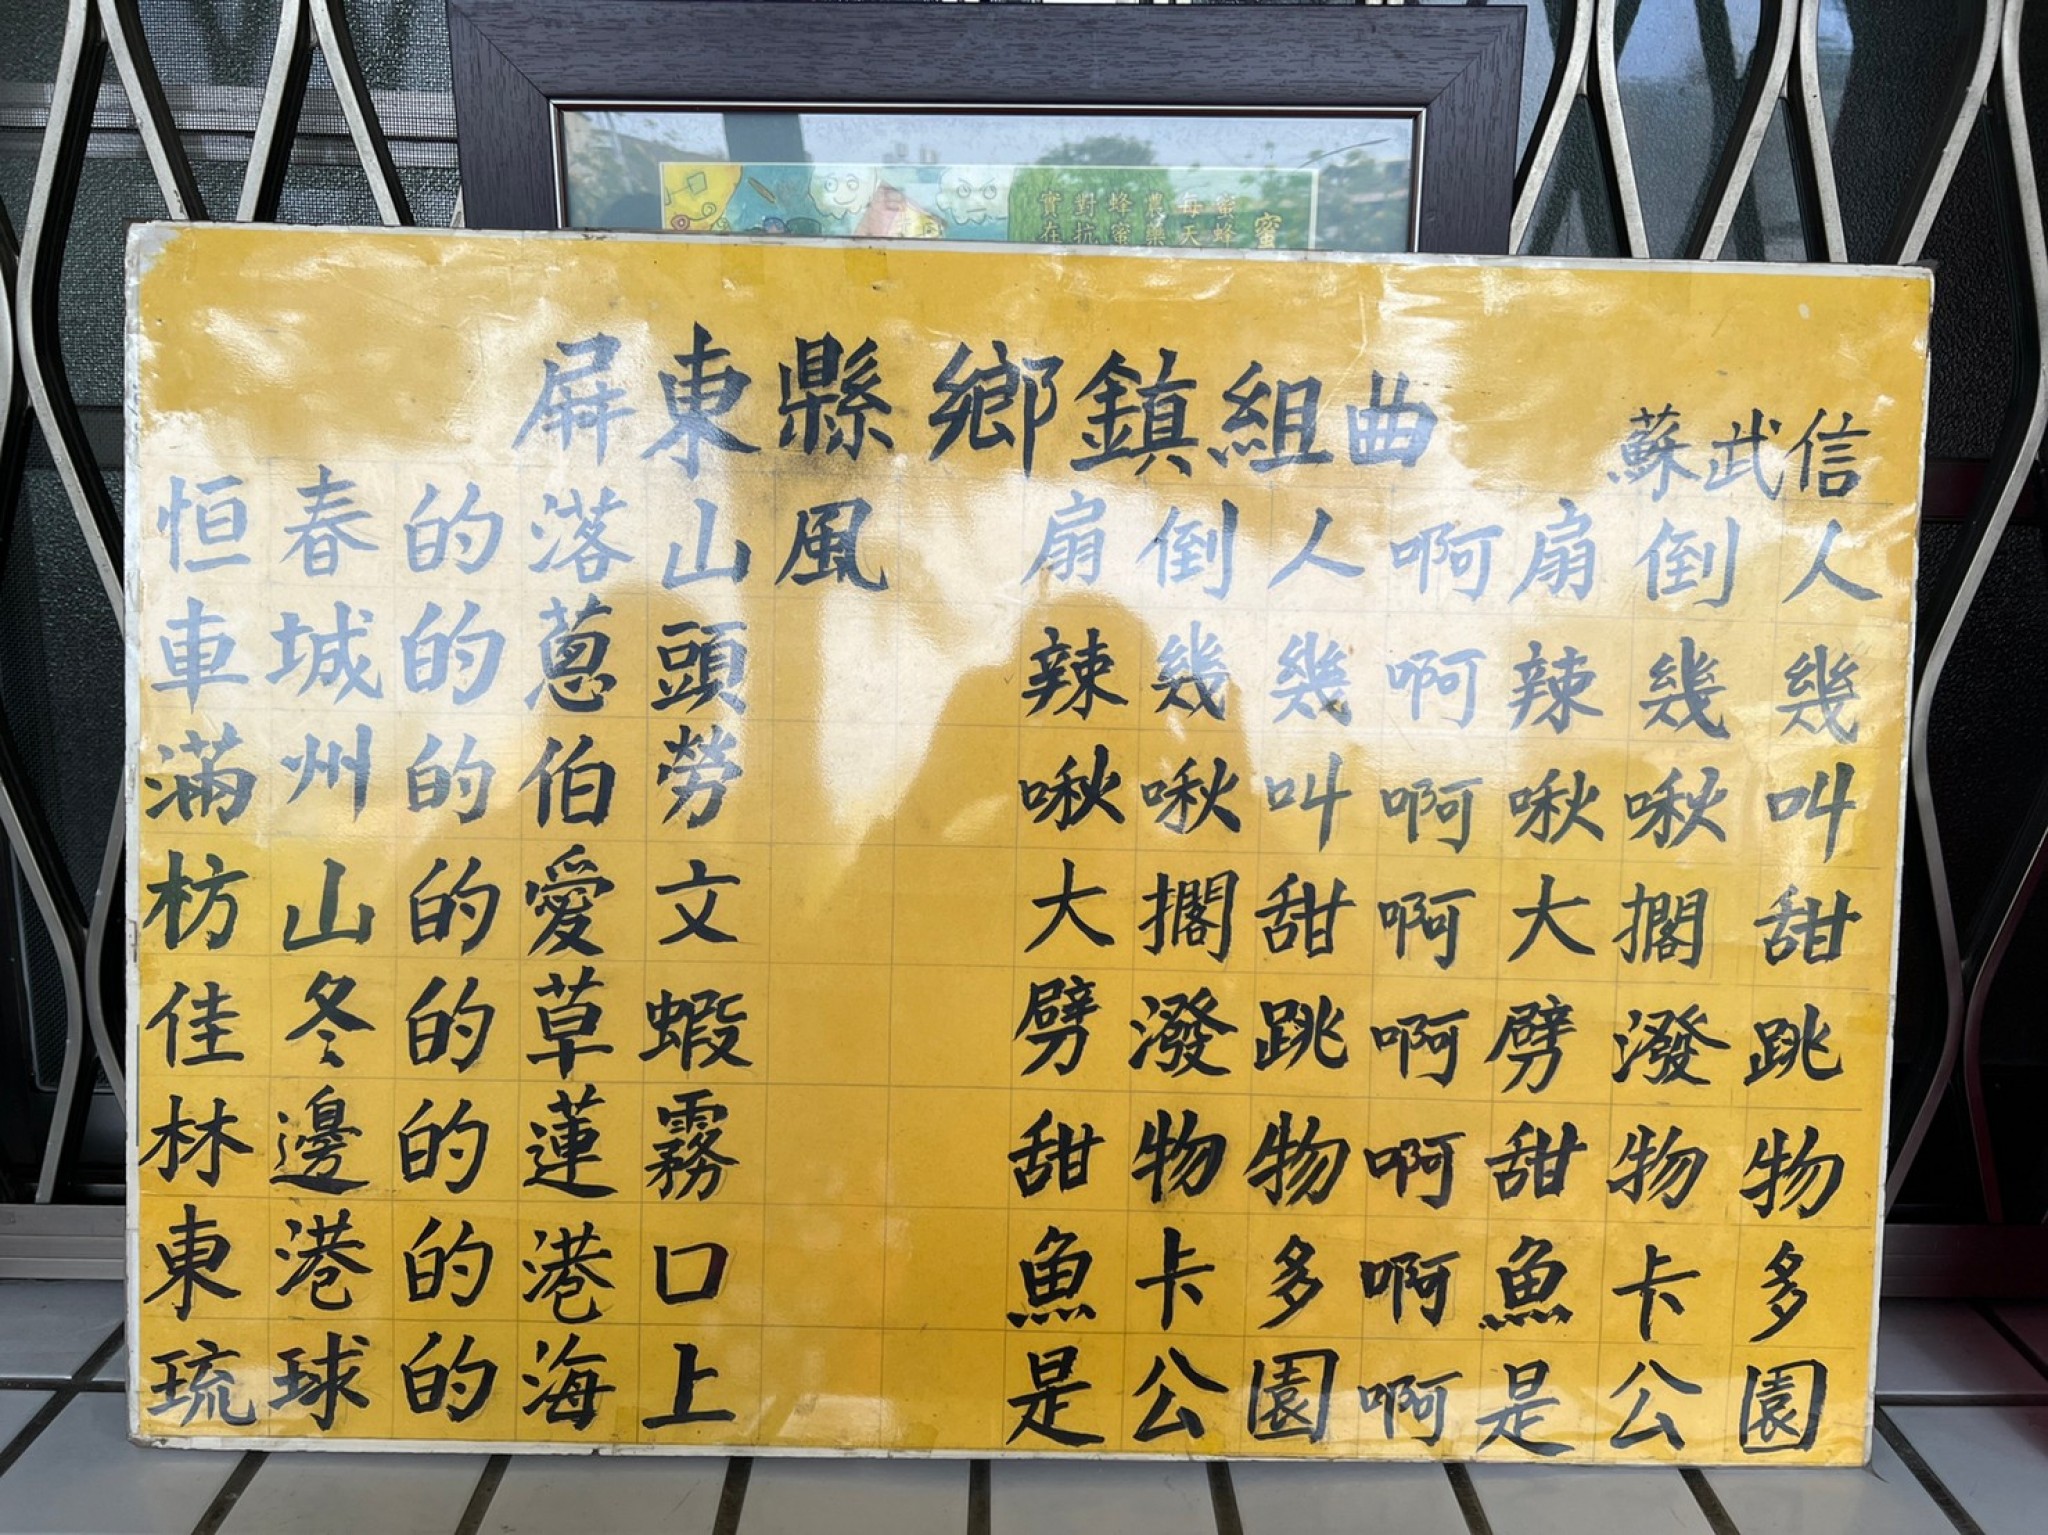 蜜
蜜蜂
每天
農藥
蜂蜜
對抗
實在
屏東縣鄉鎮組曲 蘇武信
恒春的落山風 扇倒人啊扇倒人
車城的蔥頭 辣幾幾啊辣幾幾
滿州的伯勞 啾啾叫啊啾啾叫
枋山的愛文 大擱甜啊大擱甜
佳冬的草蝦 劈潑跳啊劈潑跳
林邊的蓮霧 甜物物啊甜物物
東港的港口 魚卡多啊魚卡多
琉球的海上 是公園啊是公園